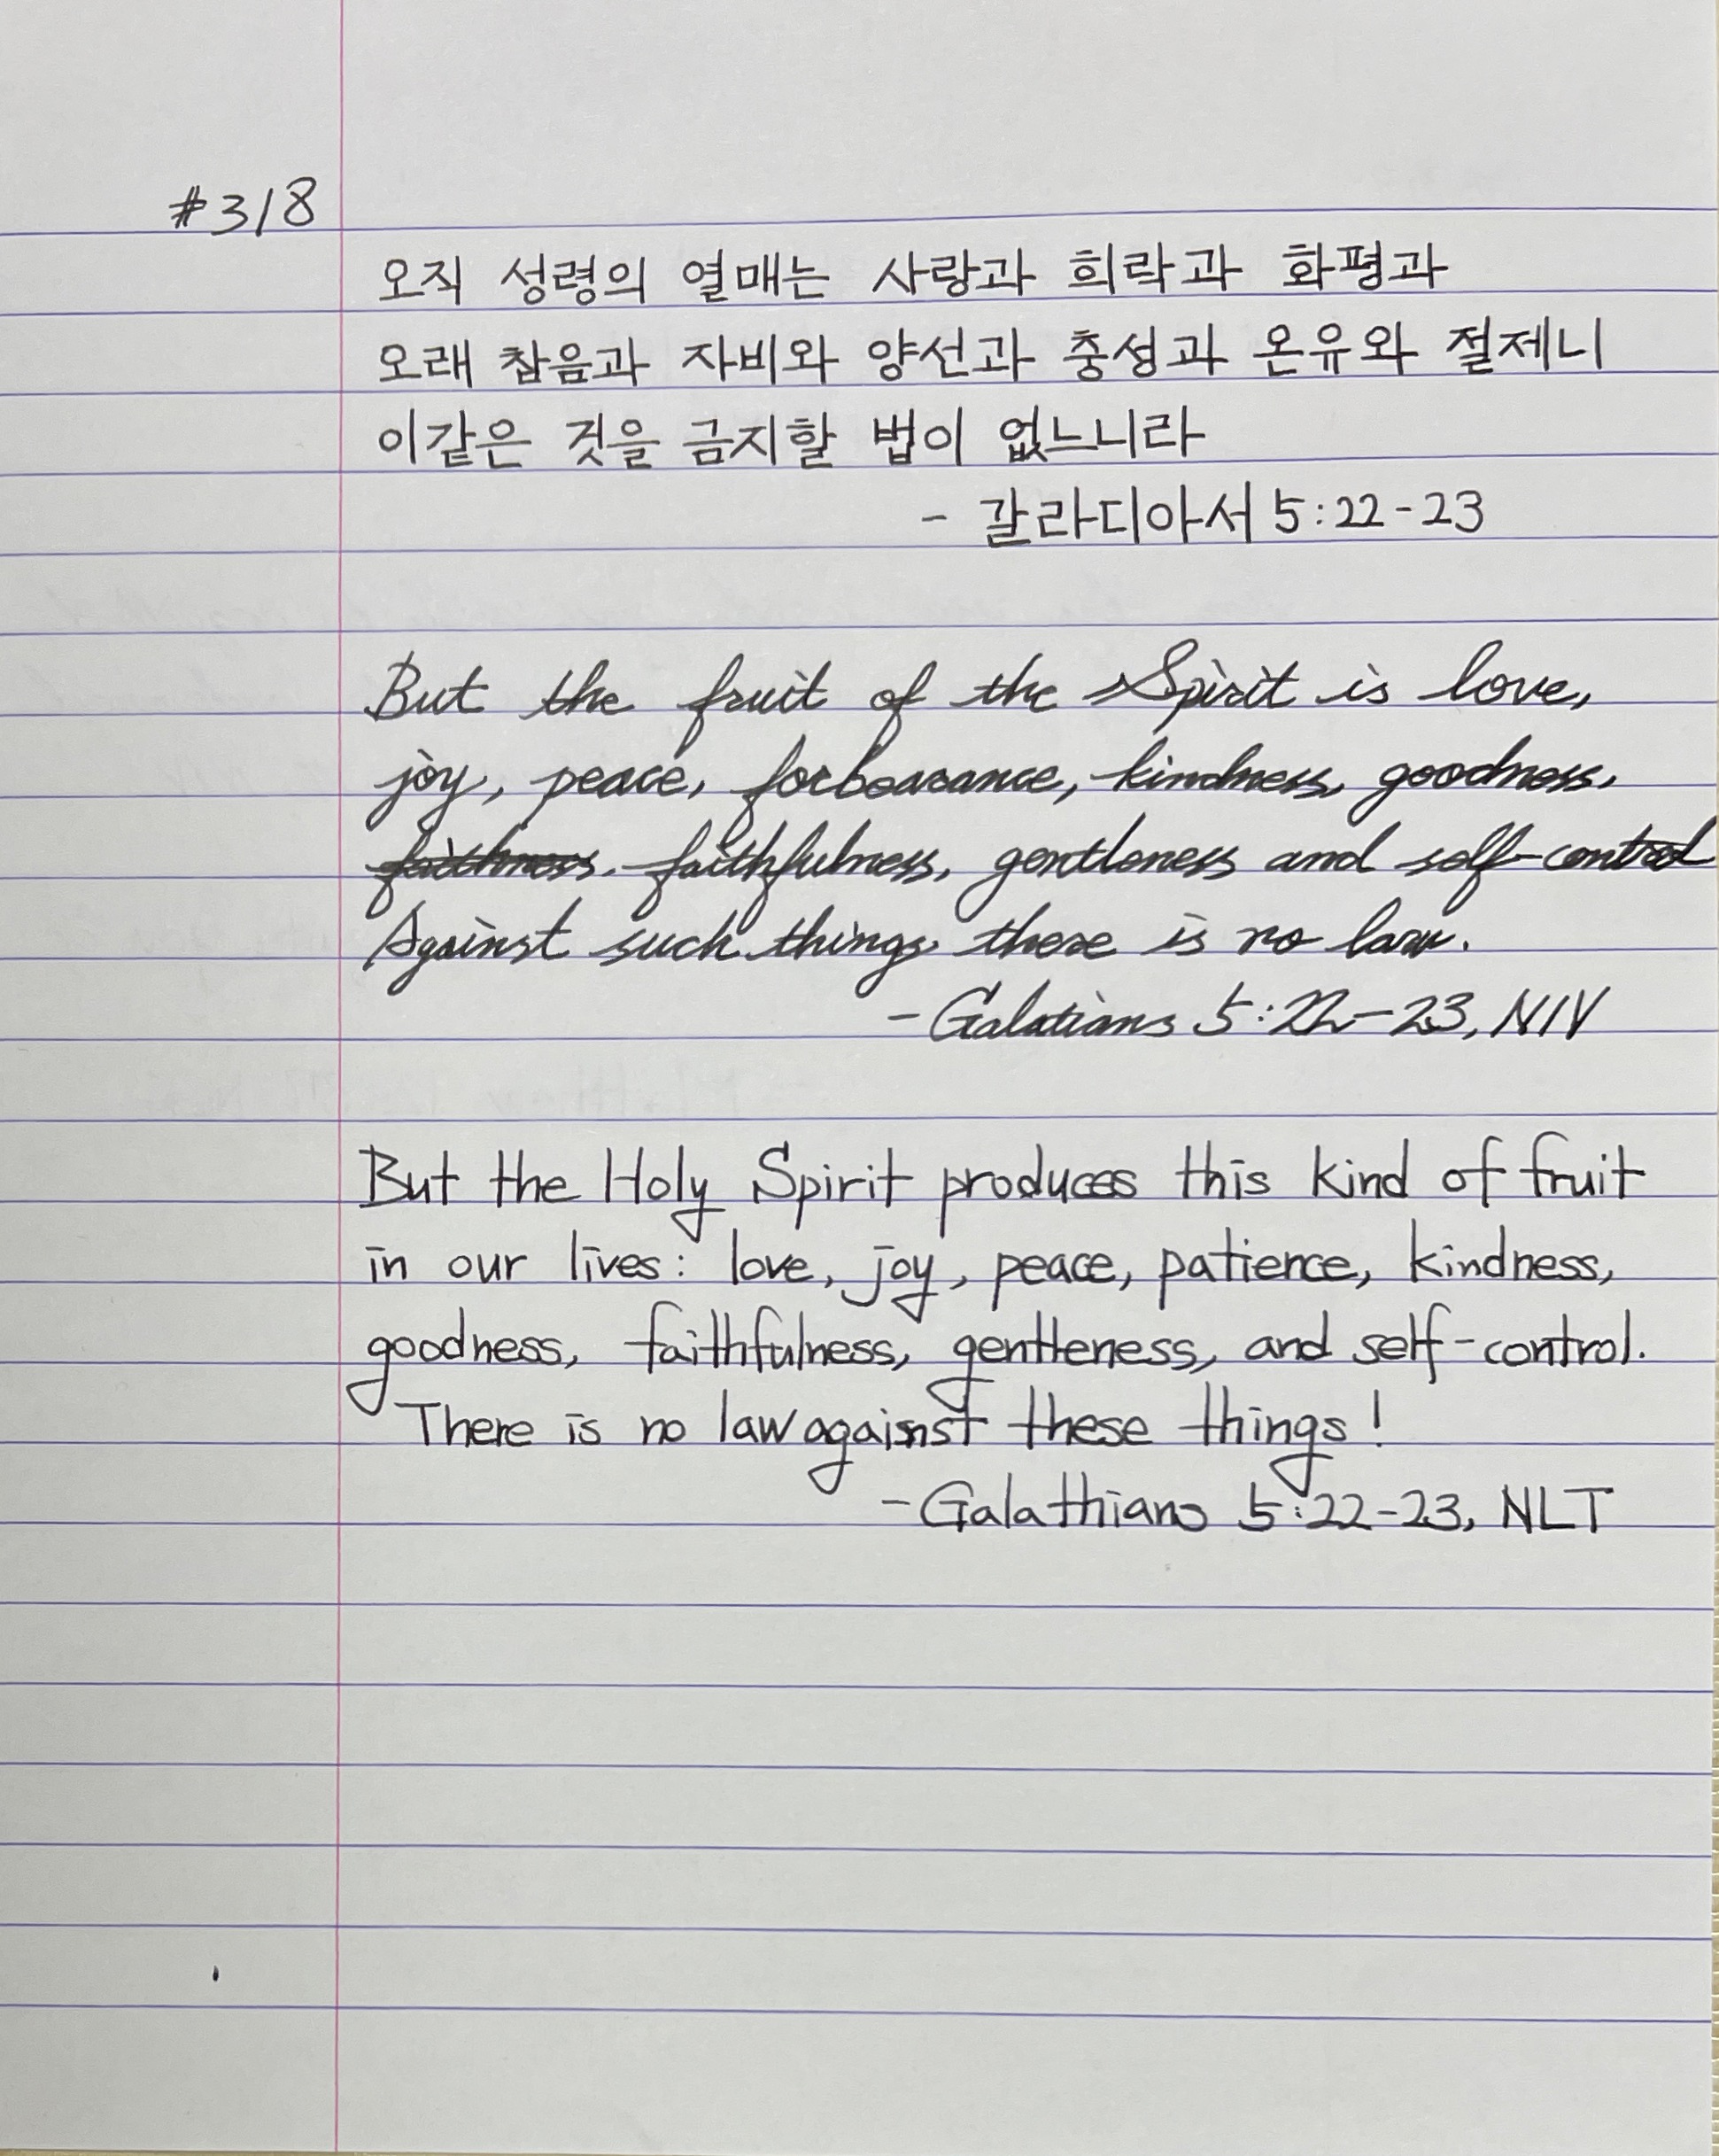 #318
오직 성령의 열매는 사랑과 희락과 화평과
오래 참음과 자비와 양선과 충성과 온유와 절제니
이같은 것을 금지할 법이 없느니라
- 갈라디아서 5:22-23
But the fruit of the Spirit is love,
joy, peace, forbearance, kindness, goodness,
faithness. faithfulness, gentleness and self-control
Against such things there is no law.
- Galatians 5:22-23, NIV
But the Holy Spirit produces this kind of fruit
in our lives: love, joy, peace, patience, kindness,
goodness, faithfulness, gentleness, and self-control.
There is no law against these things!
- Galathians 5:22-23, NLT